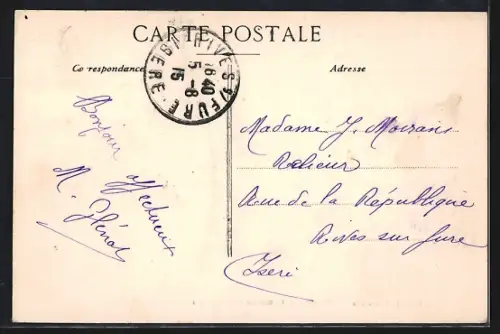 CARTE POSTALE
Correspondance
Adresse
RIVES S/ FURE
16 40
5-8
15
ISERE
Bonjour
M.
Madame J. Moirans
Relieur
Rue de la République
Rives sur fure
Isère